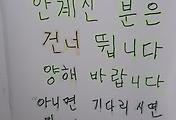 안계신 분은
건너 뜁니다
양해 바랍니다
아니면 기다리시면